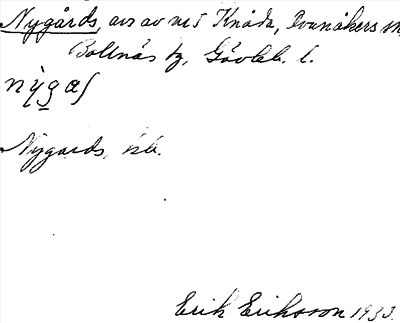 Nygårds, avs av nr 5 Knåda, Ovanåkers sn,
Bollnäs tg, Gävleb. l.
nỳgaʃ
Nygards, kb.
Erik Eriksson 1933.